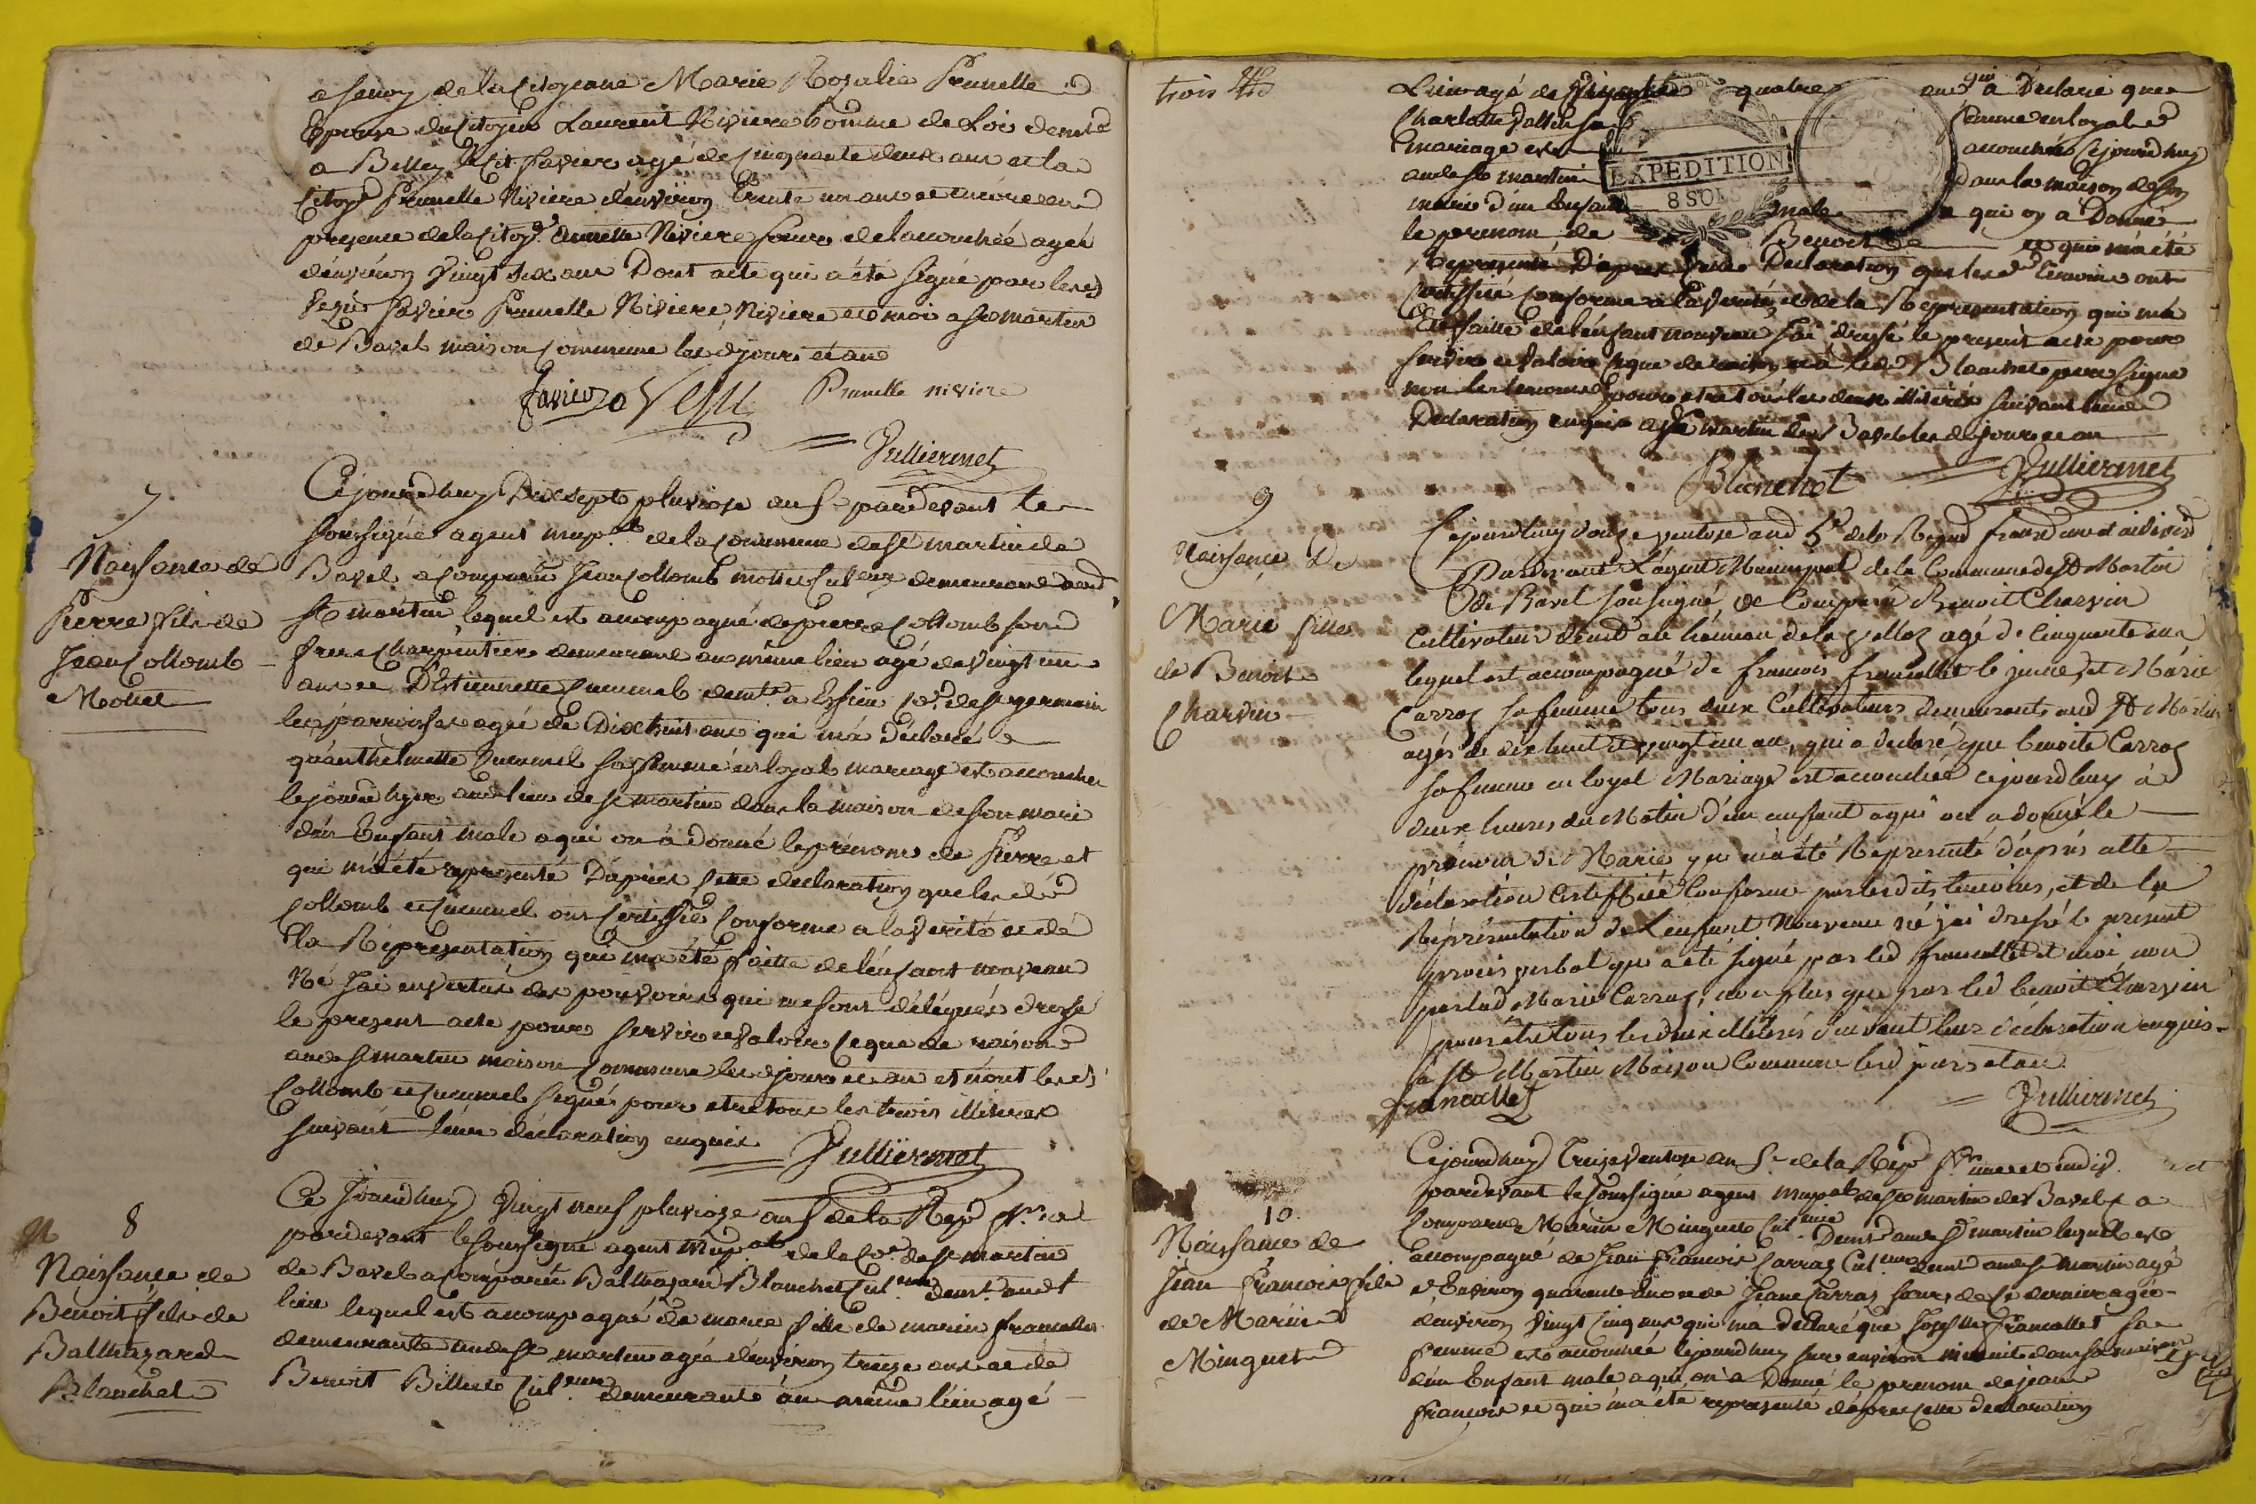 a Seuoz de la Citoyenne Marie Rosalie Prunelle
Epouse du Citoyen Laurent Riviere homme de Loi demt
a Belley led Cit Favier agé de Cinquante deux ans et la
Citoye Prunelle Riviere d'environ trente un ans et encore en
presence de la Citoye Riviere sœur de l'acouchée agée
d'environ vingt six ans Dont acte qui a été signé par lesd
Vequi Favier Prunelle Riviere Riviere et moi a St martin
de Bavel maison commune lesd jour et an
Favier Vequi Prunelle riviere
Julliermet
7
Naissance de
Pierre fils de
Jean Collomb
Mollet
Cejourdhuy Dix sept pluviose an 5e pardevant le
soussigné agent mupal de la commune de St martin de
Bavel a comparu Jean Collomb mollet Culeur demeurant aud
St martin, lequel est acompagné de pierre Collomb son
frere Charpentier demeurant au même lieu agé de vingt un
ans et D'Estiennette demte a Essieu Coe de St germain
les parroisses agée de Dix huit ans qui m'a déclaré
qu'anthelmette sa femme en loyal mariage est acouchée
cejourdhyer aud lieu de St martin dans la maison de son mari
d'un Enfant male a qui on a donné le prénom de Pierre et
qui m'a été representé D'après cette declaration que lesd
Collomb et ont certiffié conforme a la verité et de
la Représentation qui m'a été faitte de l'enfant nouveau
Né J'ai en vertu des pouvoirs qui me sont délégués dressé
le present acte pour servir et valoir ce que de raison
aud St martin maison Commune lesd jour et an et n'ont lesd
Collomb et signé pour etre tous les trois illiterés
suivant leur déclaration enquis
Julliermet
8
Naissance de
Benoit fils de
Balthazard
Blanchet
Ce Jourdhuy vingt neuf pluviose an 5 de la Rep fr
pardevant le soussigné agent mupal de la Coe de St martin
de Bavel a comparu Balthazard Blanchet Culeur demt audt
lieu lequel est acompagné de marie fille de marin francallet
demeurante aud St martin agée d'environ treize ans et de
Benoit Billiet Culeur demeurant au même lieu agé
trois
Lieu agé de quatre ans qui a Declaré que
Charlotte sa femme en loyal
mariage est acouchée cejourdhuy
aud St martin dans la maison de son
mari d'un Enfant male a qui on a Donné
le prenom de Benoit et qui m'a été
Représenté D'après Declaration que lesd temoins ont
certiffié conforme a la verité, et de la Représentation qui m'a
été faitte de l'enfant nouveau J'ai dressé le present acte pour
servir et valoir ce que de raison led Blanchet pere signé
non les temoins pour etre tous les deux illiterés suivant leur
Declaration enquis a St martin de Bavel lesd jour et an
EXPEDITION
8 SOLS
Blanchet Julliermet
9
Naissance De
Marie fille
de Benoit
Charvin
Cejourdhuy douze ventose and 5e de la Repe france une et indivise
Pardevant L'agent Municipal de la Commune de St Martin
de Bavel soussigné, ve Comparu Benoit Charvin
Cultivateur demt au hameau de la agé de cinquante ans
lequel est acompagné de francois francallet le jeune, et Marie
Carraz sa femme tous deux Cultivateurs demeurants aud St Martin
agés de dix huit et vingt un an, qui a declaré que benoite Carraz
sa femme en loyal Mariage est acouchée cejourdhuy à
deux heures du Matin d'un enfant a qui on a donné le
prénom de Marie qui m'a été Représenté d'après cette
déclaration Certiffiée Conforme par lesdits temoins, et de la
Représentation de L'enfant Nouveau né j'ai dressé le présent
procès verbal qui a été signé par led francallet et moi non
par lad Marie Carraz, non plus que par led benoit Charvin
pour être tous les deux illiterés suivant leur déclaration enquis
à St Martin Maison Commune lesd jours et an
francallet
Julliermet
10
Naissance de
Jean francois fils
de Marin
Minguet
Cejourdhuy Treize ventose an 5e de la Repe fr une et indiv.
pardevant le soussigné agent mupal de St martin de Bavel a
Comparu Marin Minguet Culeur Demt aud St martin lequel est
accompagné de Jean francois Carraz Culeur demt aud St martin agé
d'Environ quarante ans et de Jeane Carraz sœur de ce dernier agée
d'environ vingt cinq ans qui m'a declaré que Josephte francallet sa
femme est acouchée cejourdhuy sur environ minuit dans sa maison
d'un Enfant male a qui on a Donné le prenom de jean
françois et qui m'a été representé d'après cette declaration